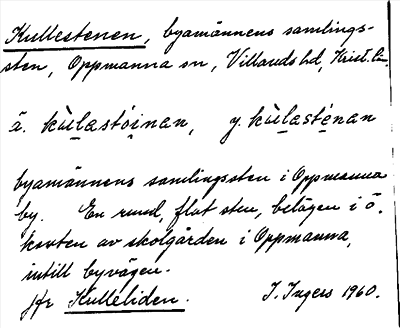 Kullestenen, byamännens samlings-
sten, Oppmanna sn, Villands hd, Krist. län.
ä. kùlastóinan, y. kùlasténan
byamännens samlingssten i Oppmanna
by. En rund, flat sten, belägen i ö.
kanten av skolgården i Oppmanna,
intill byvägen.
Jfr Kulleliden. I. Ingers 1960.